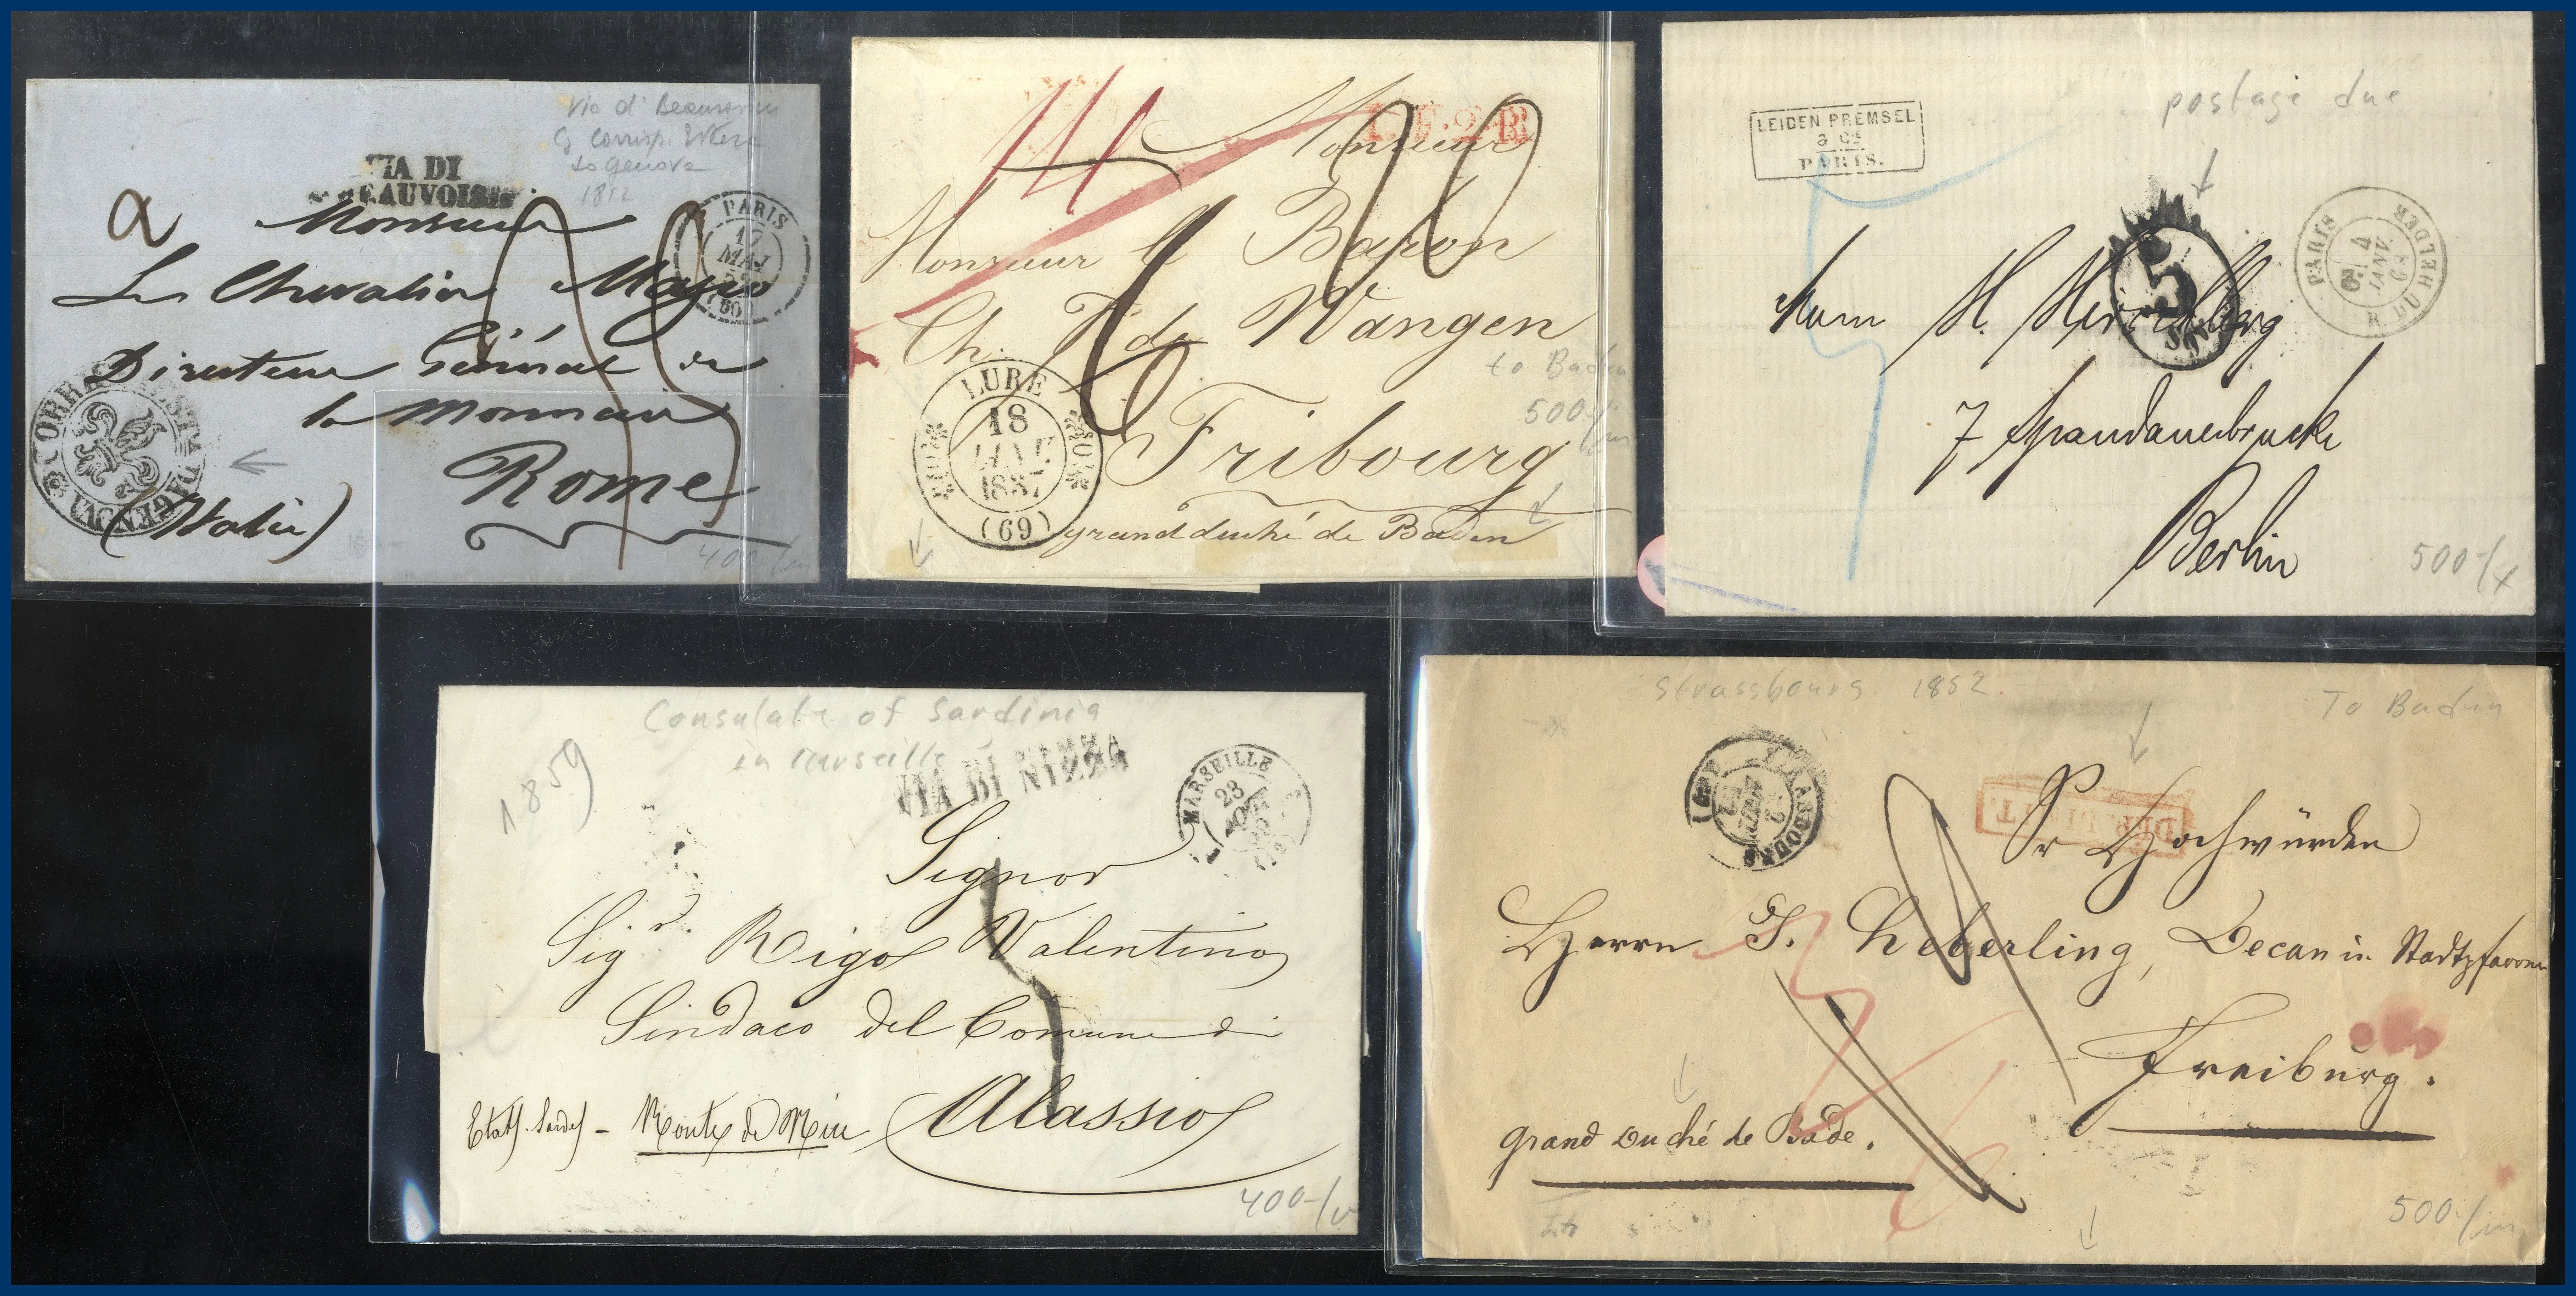 to Genova
1852
VIA DI
BEAUVOISIN
PARIS
MAI
(60)
a
Monsieur
Le Chevalier Mazio
Directeur Général de
la Monnaie
Rome
(Italie)
CORRISP ESTERA DA GENOVA
400-/m
C.F.2.R
Monsieur
Monsieur le Baron
Ch. F. de Wangen
to Baden
500-/m
LURE
18
JANV.
1837
(69)
Fribourg
grand duché de Baden
postage due
LEIDEN PREMSEL
& Cie
PARIS.
PARIS
R. DU HELDER
4
JANV.
68
5
Sgr
Herrn H. Herzberg
7 Spandauerbrucke
Berlin
500-/x
Consulate of Sardinia
in Marseille
1859
VIA DI NIZZA
MARSEILLE
23
AOUT
Signor
Sigr. Rigo Valentino
Sindaco del Comune di
Alassio
Etats Sardes - Route de Nice
400-/v
Strassbourg. 1852.
To Baden
STRASBOURG
Sr Hochwürden
Herrn J. Heberling, Decan u. Stadtpfarrer
Freiburg.
Grand Duché de Bade.
500-/m